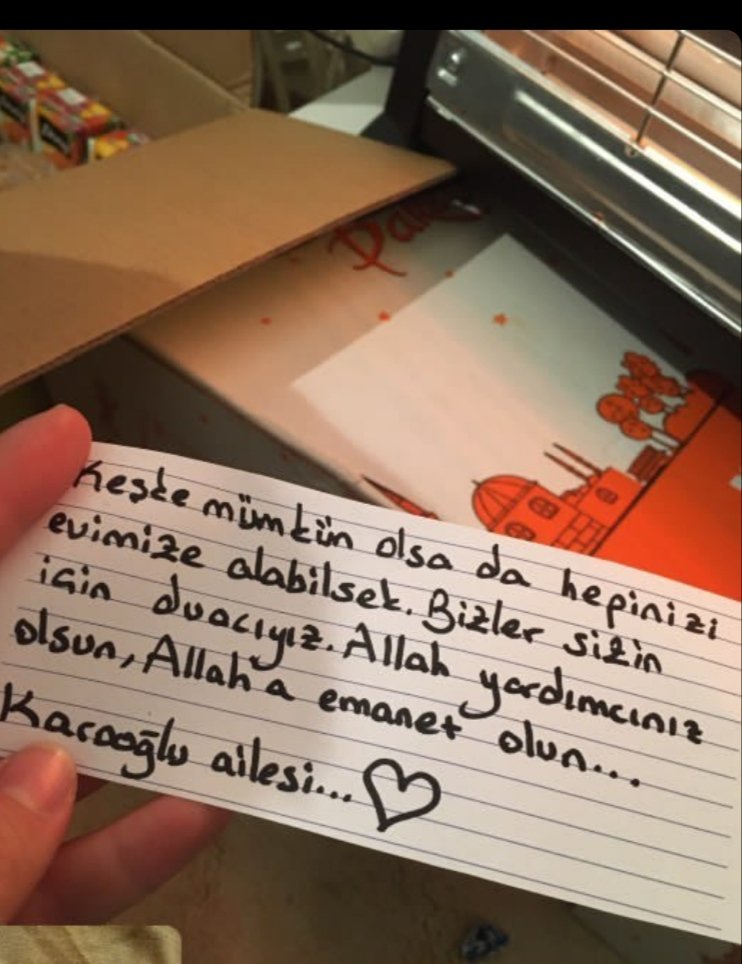 Keşke mümkün olsa da hepinizi
evimize alabilsek. Bizler sizin
için duacıyız. Allah yardımcınız
olsun, Allah'a emanet olun...
Karaoğlu ailesi...